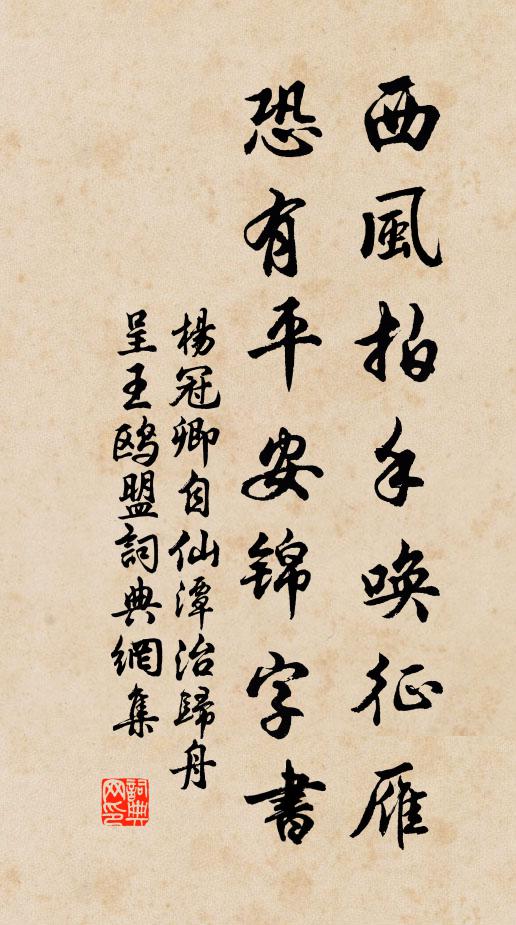 西風拍手喚征雁
恐有平安錦字書
楊冠卿自仙潭治歸舟
呈王鷗盟詞典網集
詞典网印